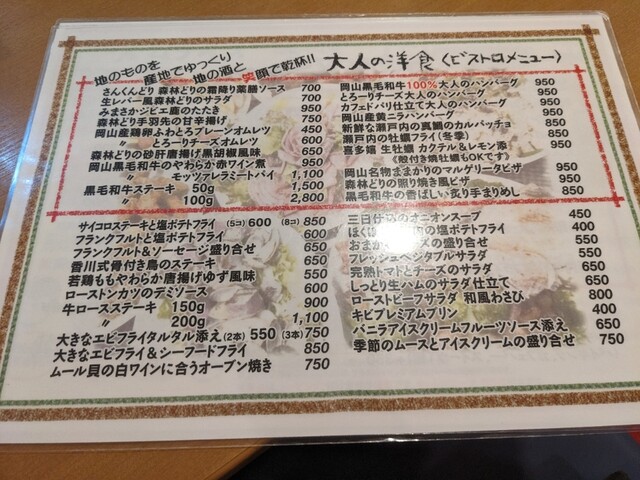 地のものを
産地でゆっくり
地の酒と笑顔で乾杯!!
大人の洋食〈ビストロメニュー〉
さんくんどり 森林どりの霜降り薬膳ソース 700
生レバー風森林どりのサラダ 700
みまさかジビエ鹿のたたき 950
森林どり手羽先の甘辛揚げ 750
岡山産鶏卵ふわとろプレーンオムレツ 450
〃 とろーりチーズオムレツ 600
森林どりの砂肝唐揚げ黒胡椒風味 650
岡山黒毛和牛のやわらか赤ワイン煮 950
モッツァレラミートパイ 1,100
黒毛和牛ステーキ 50g 1,500
〃 100g 2,800
岡山黒毛和牛100%大人のハンバーグ 950
とろーりチーズ大人のハンバーグ 950
カフェドバリ仕立て大人のハンバーグ 950
岡山産黄ニラハンバーグ 950
新鮮な瀬戸内の真鯛のカルパッチョ 850
瀬戸内の牡蠣フライ(冬季) 850
喜多嬉 生牡蠣 カクテル&レモン添 950
《殻付き焼牡蠣もOKです》
岡山名物ままかりのマルゲリータピザ 950
森林どりの照り焼き風ピザ 950
黒毛和牛の香ばしい炙り手まりめし 850
サイコロステーキと塩ポテトフライ (5コ) 600 (8コ) 850
フランクフルトと塩ポテトフライ 600
フランクフルト&ソーセージ盛り合せ 650
香川式骨付き鳥のステーキ 650
若鶏ももやわらか唐揚げゆず風味 550
ローストンカツのデミソース 600
牛ロースステーキ 150g 900
〃 200g 1,100
大きなエビフライタルタル添え(2本) 550 (3本) 750
大きなエビフライ&シーフードフライ 850
ムール貝の白ワインに合うオーブン焼き 750
三日仕込のオニオンスープ 450
ほくほく の塩ポテトフライ 400
おまか ーズの盛り合せ 550
フレッシュベジタブルサラダ 550
完熟トマトとチーズのサラダ 650
しっとり生ハムのサラダ仕立て 650
ローストビーフサラダ 和風わさび 800
キビプレミアムプリン 400
バニラアイスクリームフルーツソース添え 650
季節のムースとアイスクリームの盛り合せ 750